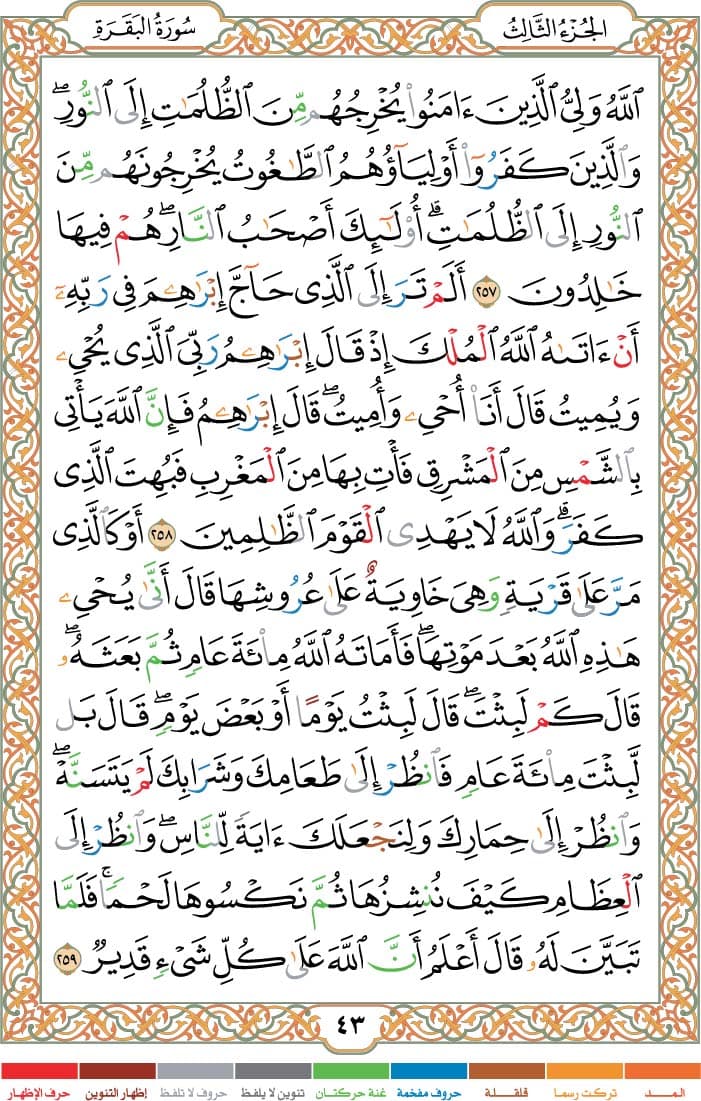 الجُزْءُ الثَّالِثُ
سُورَةُ البَقَرَةِ
ٱللَّهُ وَلِيُّ ٱلَّذِينَ ءَامَنُوا۟ يُخْرِجُهُم مِّنَ ٱلظُّلُمَٰتِ إِلَى ٱلنُّورِ ۖ
وَٱلَّذِينَ كَفَرُوٓا۟ أَوْلِيَآؤُهُمُ ٱلطَّٰغُوتُ يُخْرِجُونَهُم مِّنَ
ٱلنُّورِ إِلَى ٱلظُّلُمَٰتِ ۗ أُو۟لَٰٓئِكَ أَصْحَٰبُ ٱلنَّارِ ۖ هُمْ فِيهَا
خَٰلِدُونَ ٢٥٧ أَلَمْ تَرَ إِلَى ٱلَّذِى حَآجَّ إِبْرَٰهِۦمَ فِى رَبِّهِۦٓ
أَنْ ءَاتَىٰهُ ٱللَّهُ ٱلْمُلْكَ إِذْ قَالَ إِبْرَٰهِۦمُ رَبِّىَ ٱلَّذِى يُحْىِۦ
وَيُمِيتُ قَالَ أَنَا۠ أُحْىِۦ وَأُمِيتُ ۖ قَالَ إِبْرَٰهِۦمُ فَإِنَّ ٱللَّهَ يَأْتِى
بِٱلشَّمْسِ مِنَ ٱلْمَشْرِقِ فَأْتِ بِهَا مِنَ ٱلْمَغْرِبِ فَبُهِتَ ٱلَّذِى
كَفَرَ ۗ وَٱللَّهُ لَا يَهْدِى ٱلْقَوْمَ ٱلظَّٰلِمِينَ ٢٥٨ أَوْ كَٱلَّذِى
مَرَّ عَلَىٰ قَرْيَةٍ وَهِىَ خَاوِيَةٌ عَلَىٰ عُرُوشِهَا قَالَ أَنَّىٰ يُحْىِۦ
هَٰذِهِ ٱللَّهُ بَعْدَ مَوْتِهَا ۖ فَأَمَاتَهُ ٱللَّهُ مِا۟ئَةَ عَامٍ ثُمَّ بَعَثَهُۥ ۖ
قَالَ كَمْ لَبِثْتَ ۖ قَالَ لَبِثْتُ يَوْمًا أَوْ بَعْضَ يَوْمٍ ۖ قَالَ بَل
لَّبِثْتَ مِا۟ئَةَ عَامٍ فَٱنظُرْ إِلَىٰ طَعَامِكَ وَشَرَابِكَ لَمْ يَتَسَنَّهْ ۖ
وَٱنظُرْ إِلَىٰ حِمَارِكَ وَلِنَجْعَلَكَ ءَايَةً لِّلنَّاسِ ۖ وَٱنظُرْ إِلَى
ٱلْعِظَامِ كَيْفَ نُنشِزُهَا ثُمَّ نَكْسُوهَا لَحْمًا ۚ فَلَمَّا
تَبَيَّنَ لَهُۥ قَالَ أَعْلَمُ أَنَّ ٱللَّهَ عَلَىٰ كُلِّ شَىْءٍ قَدِيرٌ ٢٥٩
٤٣
المـــد
تركت رسما
قلقـلة
حروف مفخمة
غنة حركتان
تنوين لا يلفظ
حروف لا تلفظ
إظهار التنوين
حرف الإظهار